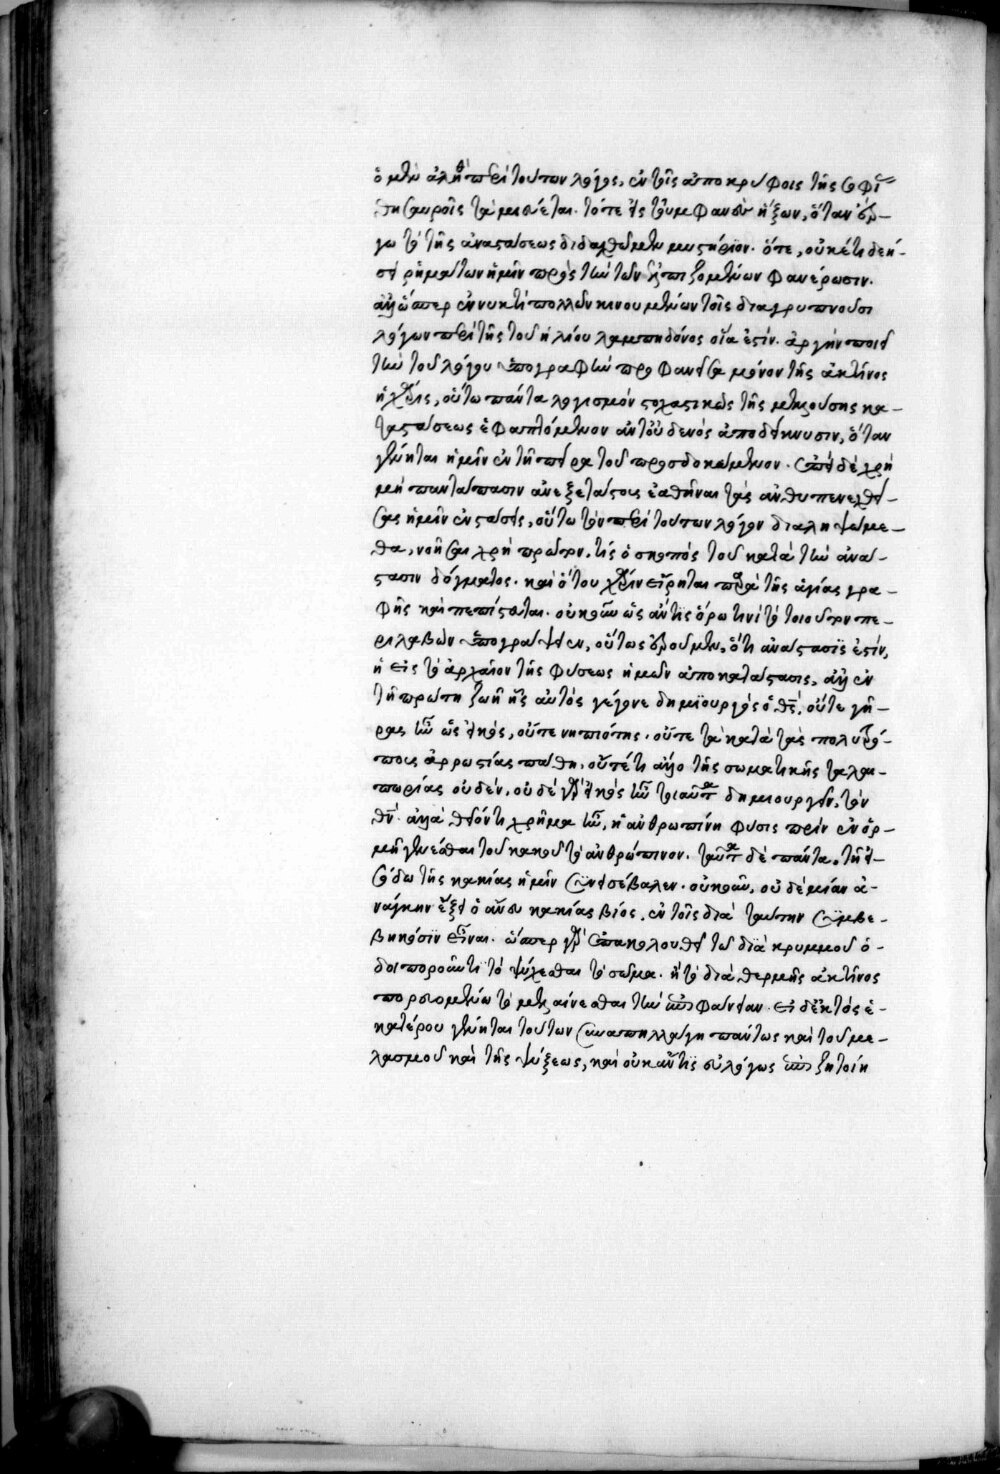 ὁ μὲν ἀληθὴς περὶ τούτων λόγος, ἐν τοῖς ἀποκρύφοις τῆς σοφί
θησαυροῖς ταμιεύεται. τότε εἰς τοὐμφανὲς ἥξων, ὅταν ἔρ-
γω τὸ τῆς ἀναστάσεως διδαχθῶμεν μυστήριον. ὅτε, οὐκέτι δεή-
σει ῥημάτων ἡμῖν πρὸς τὴν τῶν ἐλπιζομένων φανέρωσιν.
ἀλλ' ὥσπερ ἐν νυκτὶ πολλῶν κινουμένων τοῖς διαγρυπνοῦσι
λόγων περὶ τῆς τοῦ ἡλίου λαμπηδόνος οἵα ἐστίν. ἀργὴν ποιεῖ
τὴν τοῦ λόγου ὑπογραφὴν προφανεῖσα μόνον τῆς ἀκτῖνος
ἡ χάρις, οὕτω πάντα λογισμόν στοχαστικῶς τῆς μελλούσης κα-
ταστάσεως ἐφαπτόμενον ἀντ' οὐδενός ἀποδείκνυσιν, ὅταν
γένηται ἡμῖν ἐν τῆ πείρα τοῦ προσδοκώμενον. ἐπεὶ δὲ χρὴ
μὴ παντάπασιν ἀνεξετάστους ἐαθῆναι τὰς ἀνθυπενεχθεί-
σας ἡμῖν ἐνστάσεις, οὕτω τὸν περὶ τούτων λόγον διαληψώμε-
θα, νοῆσαι χρὴ πρῶτον, τίς ὁ σκοπός τοῦ κατὰ τὴν ἀνά-
στασιν δόγματος. καὶ ὅτου χάριν εἴρηται παρὰ τῆς ἁγίας γρα-
φῆς καὶ πεπίστευται. οὐκοῦν ὡς ἄν τις ὅρω τινὶ τὸ τοιοῦτον πε-
ριλαβὼν ὑπογράψειεν, οὕτως ἐροῦμεν, ὅτι ἀνάστασίς ἐστίν,
ἡ εἰς τὸ ἀρχαῖον τῆς φύσεως ἡμῶν ἀποκατάστασις, ἀλλ' ἐν
τῆ πρώτη ζωῆ ἧς αὐτός γέγονε δημιουργός ὁ θς, οὔτε γῆ-
ρας ἦν ὡς εἰκός, οὔτε νηπιότης. οὔτε τὰ κατὰ τὰς πολυτρό-
πους ἀρρωστίας πάθη, οὔτέ τι ἄλλο τῆς σωματικῆς ταλαι-
πωρίας οὐδέν, οὐδὲ γὰρ εἰκὸς ἦν τοιαῦτα δημιουργεῖν, τὸν
θν. ἀλλὰ θεῖόν τι χρῆμα ἦν, ἡ ἀνθρωπίνη φύσις πρὶν ἐν ὁρ-
μῆ γενέσθαι τοῦ κακοῦ τὸ ἀνθρώπινον. ταῦτα δὲ πάντα, τῆ εἰ-
σόδω τῆς κακίας ἡμῖν συνεισέβαλεν. οὐκοῦν, οὐδεμίαν ἀ-
νάγκην ἕξει ὁ ἄνευ κακίας βίος, ἐν τοῖς διὰ ταύτην συμβε-
βηκόσιν εἶναι. ὥσπερ γὰρ ἐπακολουθεῖ τῶ διὰ κρυμμοῦ ὁ-
δοιποροῦντι τὸ ψύχεσθαι τὸ σῶμα. ἢ τὸ διὰ θερμῆς ἀκτῖνος
πορευομένω τὸ μελαίνεσθαι τὴν ἐπιφάνειαν. εἰ δ' ἐκτὸς ἑ-
κατέρου γένηται τούτων συναπηλλάγη πάντως καὶ τοῦ με-
λασμοῦ καὶ τῆς ψύξεως, καὶ οὐκ ἄν τις εὐλόγως ἐπιζητοίη